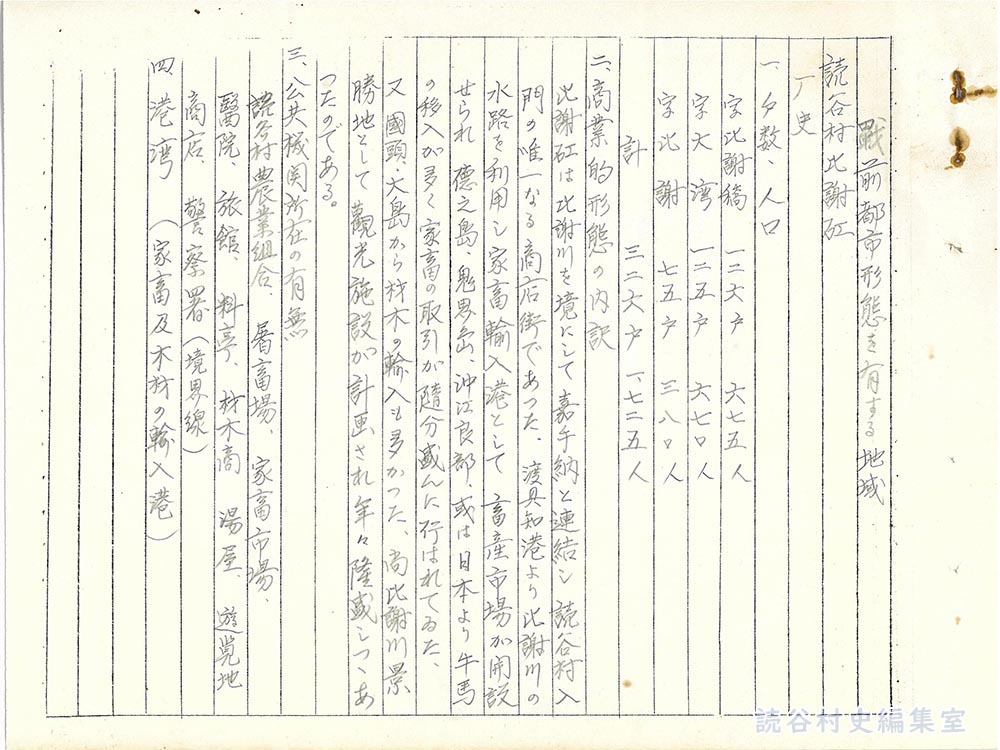 戰前都市形態を有する地域
読谷村比謝矼
厂史
一、戸数、人口
字比謝橋 一二六戸 六七五人
字大湾 一二五戸 六七〇人
字比謝 七五戸 三八〇人
計 三二六戸 一、七二五人
二、商業的形態の内訳
比謝矼は比謝川を境にして嘉手納と連結し読谷村入
門の唯一なる商店街であつた、渡具知港より比謝川の
水路を利用し家畜輸入港として畜産市場が開設
せられ徳之島、鬼界島、沖江良部、或は日本より牛馬
の移入が多く家畜の取引が随分盛んに行はれてゐた、
又國頭、大島から材木の輸入も多かつた、尚比謝川景
勝地として觀光施設が計画され年々隆盛しつゝあ
つたのである。
三、公共機関所在の有無
読谷村農業組合、屠畜場、家畜市場、
醫院、旅館、料亭、材木商 湯屋、遊覧地
商店、警察署(境界線)
四、港湾 (家畜及木材の輸入港)
読谷村史編集室